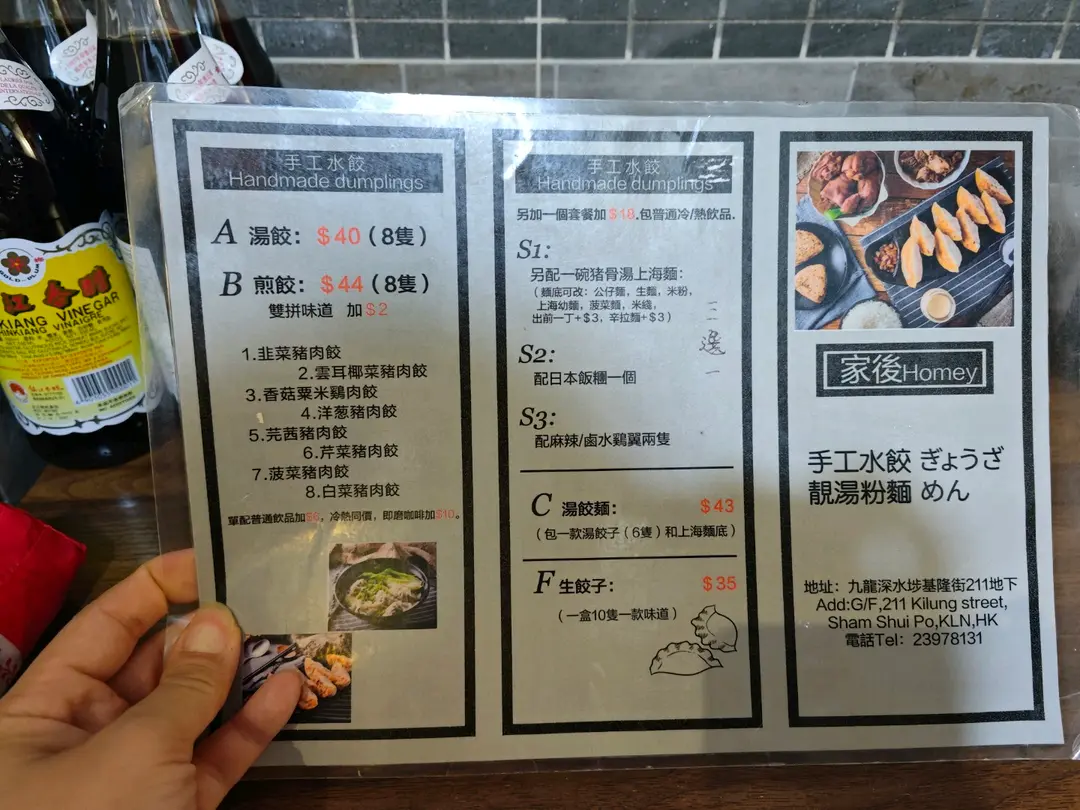 手工水餃
Handmade dumplings
A 湯餃：$40（8隻）
B 煎餃：$44（8隻）
雙拼味道 加$2
1.韭菜豬肉餃
2.雲耳椰菜豬肉餃
3.香菇粟米鷄肉餃
4.洋葱豬肉餃
5.芫茜豬肉餃
6.芹菜豬肉餃
7.菠菜豬肉餃
8.白菜豬肉餃
單配普通飲品加$6，冷熱同價，即磨咖啡加$10。
手工水餃
Handmade dumplings
另加一個套餐加$18.包普通冷/熱飲品.
S1:
另配一碗猪骨湯上海麵：
（麵底可改：公仔麵，生麵，米粉，
上海幼麵，菠菜麵，米綫，
出前一丁+$3，辛拉麵+$3）
S2:
配日本飯糰一個
S3:
配麻辣/鹵水鷄翼兩隻
三選一
C 湯餃麵：$43
（包一款湯餃子（6隻）和上海麵底）
F 生餃子：$35
（一盒10隻一款味道）
家後Homey
手工水餃 ぎょうざ
靚湯粉麵 めん
地址：九龍深水埗基隆街211地下
Add:G/F,211 Kilung street,
Sham Shui Po,KLN,HK
電話Tel：23978131
GOLD PLUM
KIANG VINEGAR
HINKIANG VINAIGRE